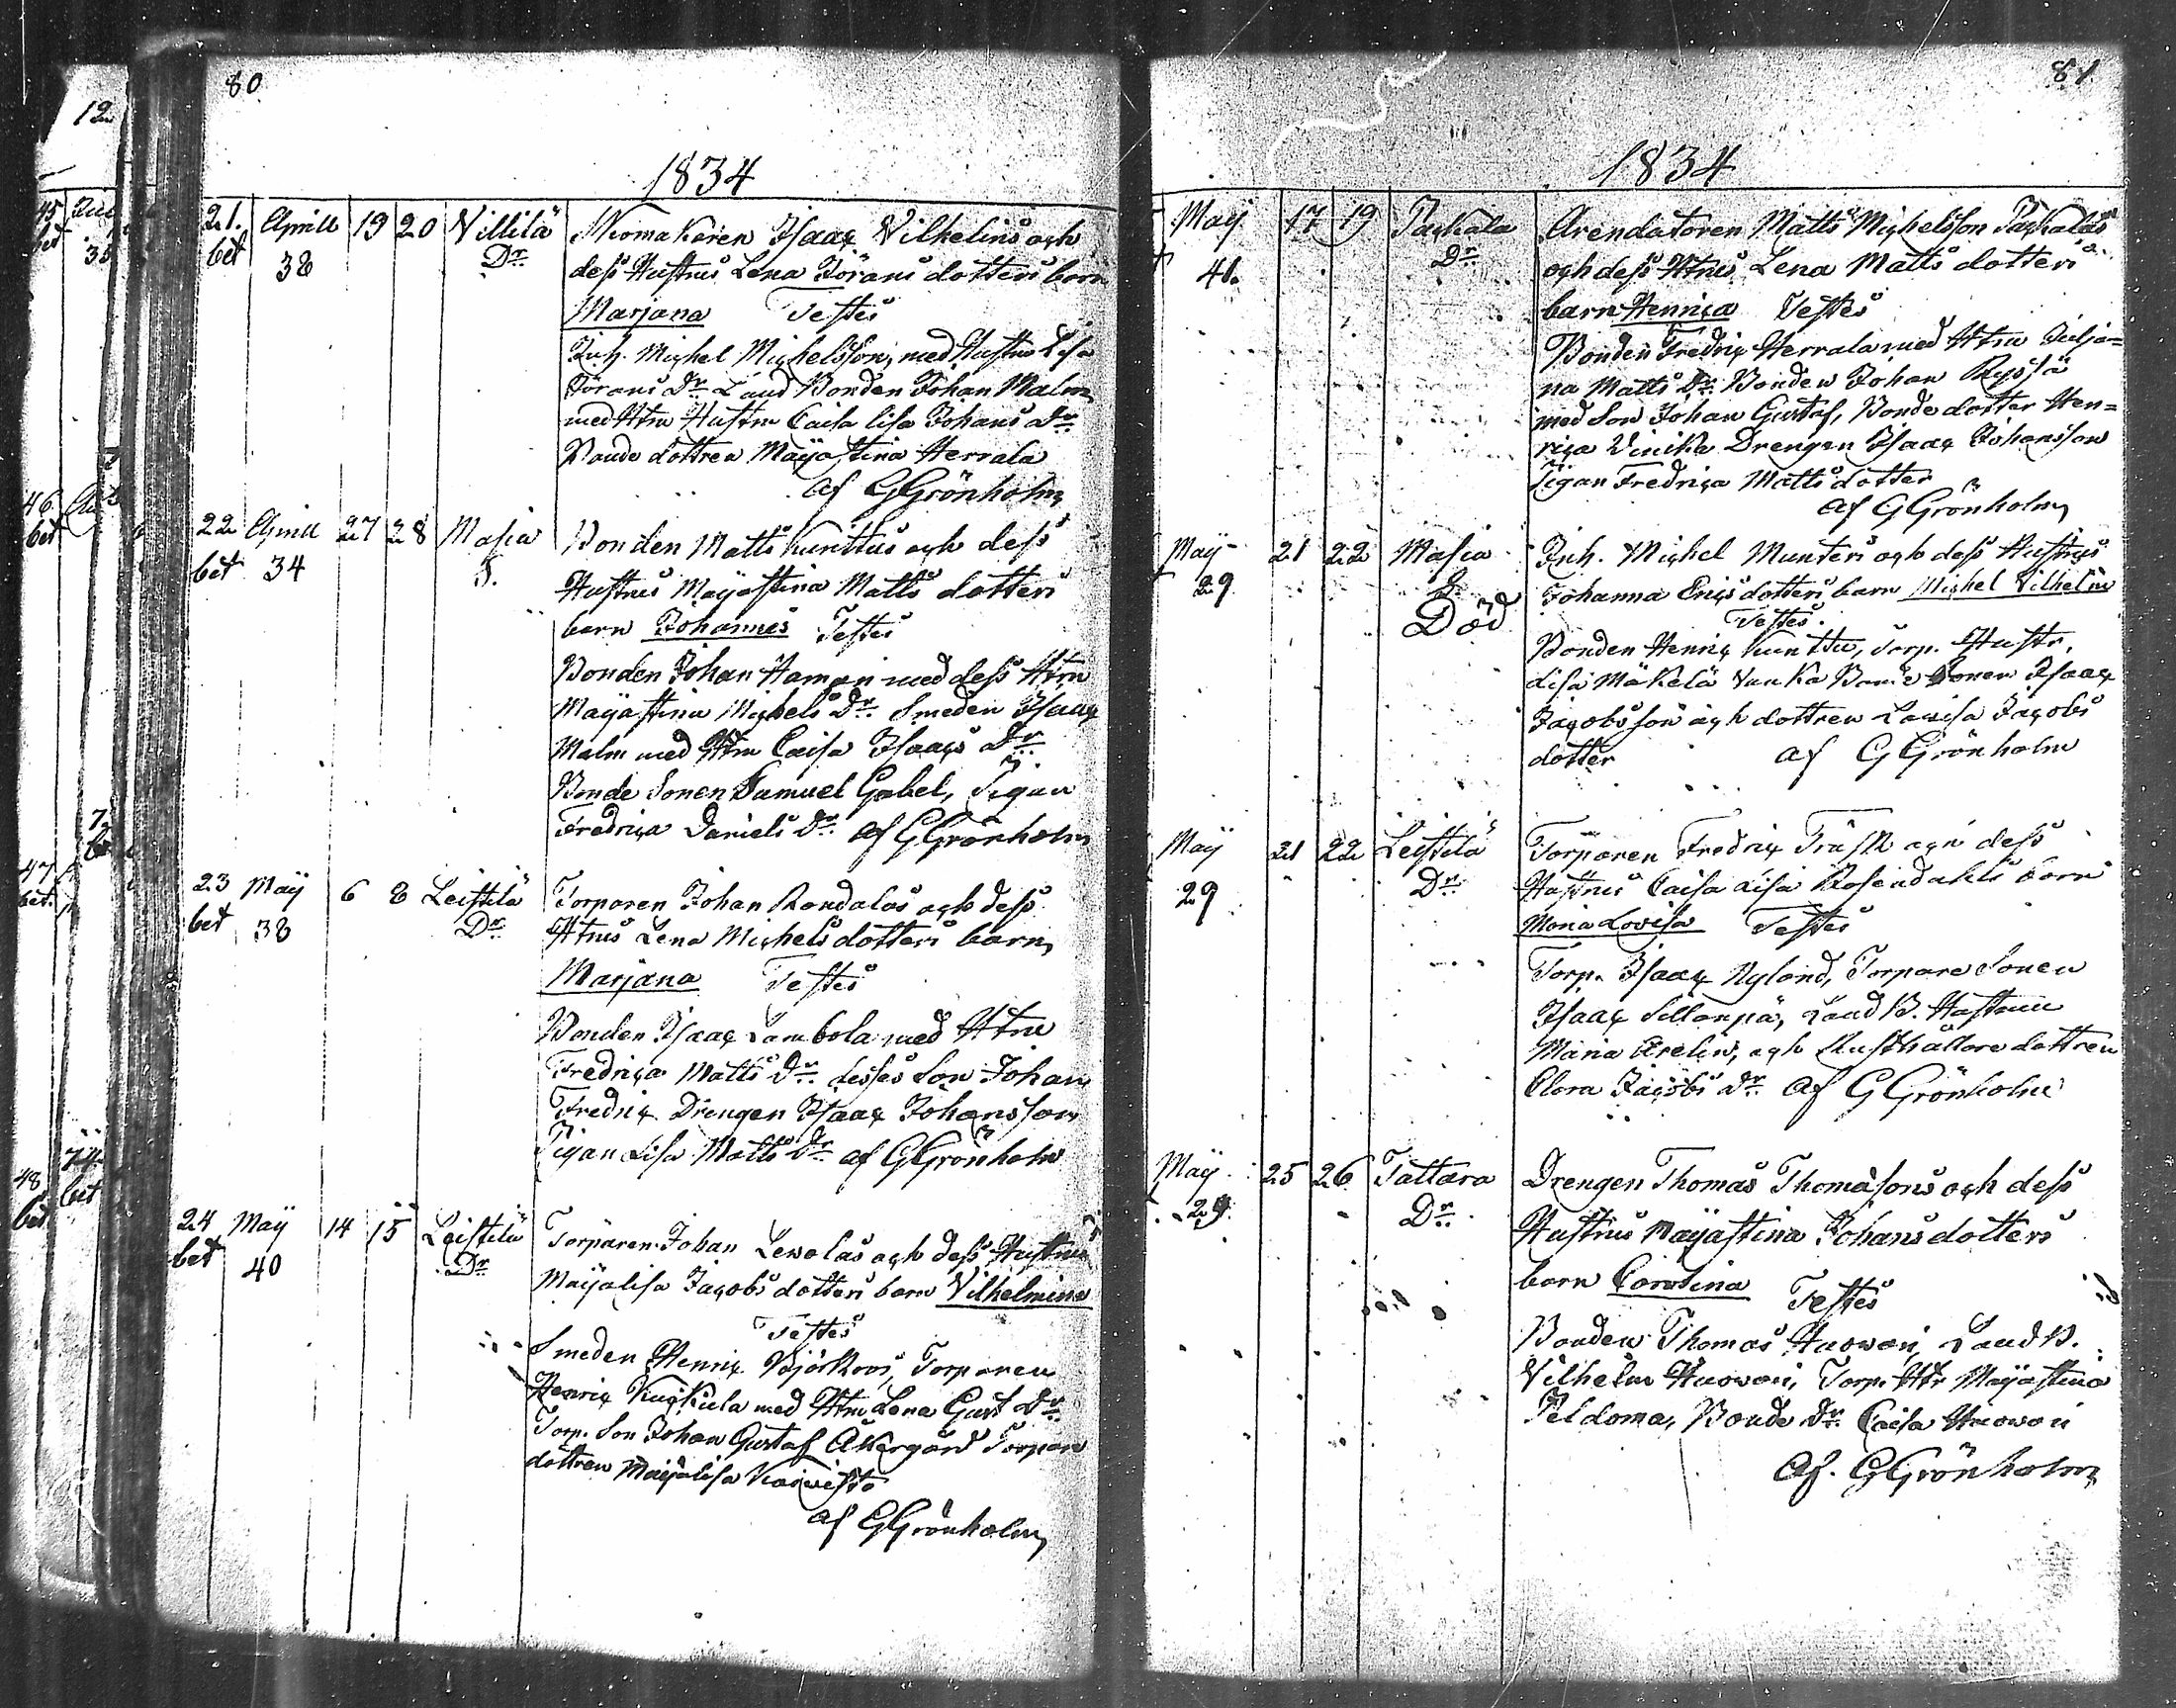 80
1834
21. Aprill 19 20 Villilä Skomakaren Isaac Vilhelins och
bet 38 Dr. dess Hustrus Lena Jörans dotters barn
Marjana Testes
Inh. Michel Michelsson, med Hustru Lisa
Jörans Dr. Land Bonden Johan Malm
med Htru Hustru Caisa Lisa Johans dr.
Bonde dottren Maijastina Herrala
af GGrönholm
22 Aprill 27 28 Masia Bonden Matts Kunttus och dess
bet 34 S. Hustrus Maijastina Matts dotters
barn Johannes Testes
Bonden Johan Haman med dess Htru
Maijastina Michels Dr. Smeden Isaac
Malm med Htru Caisa Isaacs Dr.
Bonde Sonen Samuel Gabel, Pigan
Fredrica Daniels Dr. af GGrönholm
23 Maij 6 8 Leistilä Torparen Johan Randalas och dess
bet 38 Dr. Htrus Lena Michels dotters barn
Marjana Testes
Bonden Isaac Lambola med Htru
Fredrica Matts Dr. desses Son Johan
Fredric Drengen Isaac Johansson
Pigan Lisa Matts Dr. af GGrönholm
24 Maij 14 15 Leistilä Torparen Johan Lewolas och dess Hustrus
bet 40 Dr. Maijalisa Jacobs dotters barn Vilhelmina
Testes
Smeden Henric Björkroos, Torparen
Henric Kuckula med Htru Lena Gust Dr.
Torp. Son Johan Gustaf Åkergård Torpare
dottren Maijalisa Koivisto
af GGrönholm
81
1834
Maij 17 19 Packala Arendatoren Matts Michelsson Packalas
41. Dr. och dess Htrus Lena Matts dotters
barn Henrica Testes
Bonden Fredric Herrala med Htru Julja=
na Matts Dr. Bonden Johan Ryssä
med Son Johan Gustaf, Bonde dotter Hen=
rica Vinika Drengen Isaac Johansson
Pigan Fredrica Matts dotter
af GGrönholm
Maij 21 22 Masia Inh. Michel Munters och dess Hustrus
29 S. Johanna Erics dotters barn Michel Vilhelm
Död Testes.
Bonden Henric Kunttu, Torp. Hustr.
Lisa Mäkelä Bonde Sonen Isaac
Jacobsson och dottren Lovisa Jacobs
dotter af GGrönholm
Maij 21 22 Leistilä Torparen Fredric Träsk och dess
29 Dr. Hustrus Caisa Lisa Rosendahls barn
Maria Lovisa Testes
Torp. Isaac Nylond, Torpare Sonen
Isaac Sillanpä, Land B. Hustrun
Maria Arelin, och Rusthållare dottren
Clara Jacobs Dr. af GGrönholm
Maij 25 26 Tattara Drengen Thomas Thomasons och dess
29 Dr. Hustrus Maijastina Johans dotters
barn Carolina Testes
Bonden Thomas Huowari, Land B.
Vilhelm Huowari, Torp. Htr Maijastina
Peldoma, Bonde Dr. Caisa Huowari
af. GGrönholm